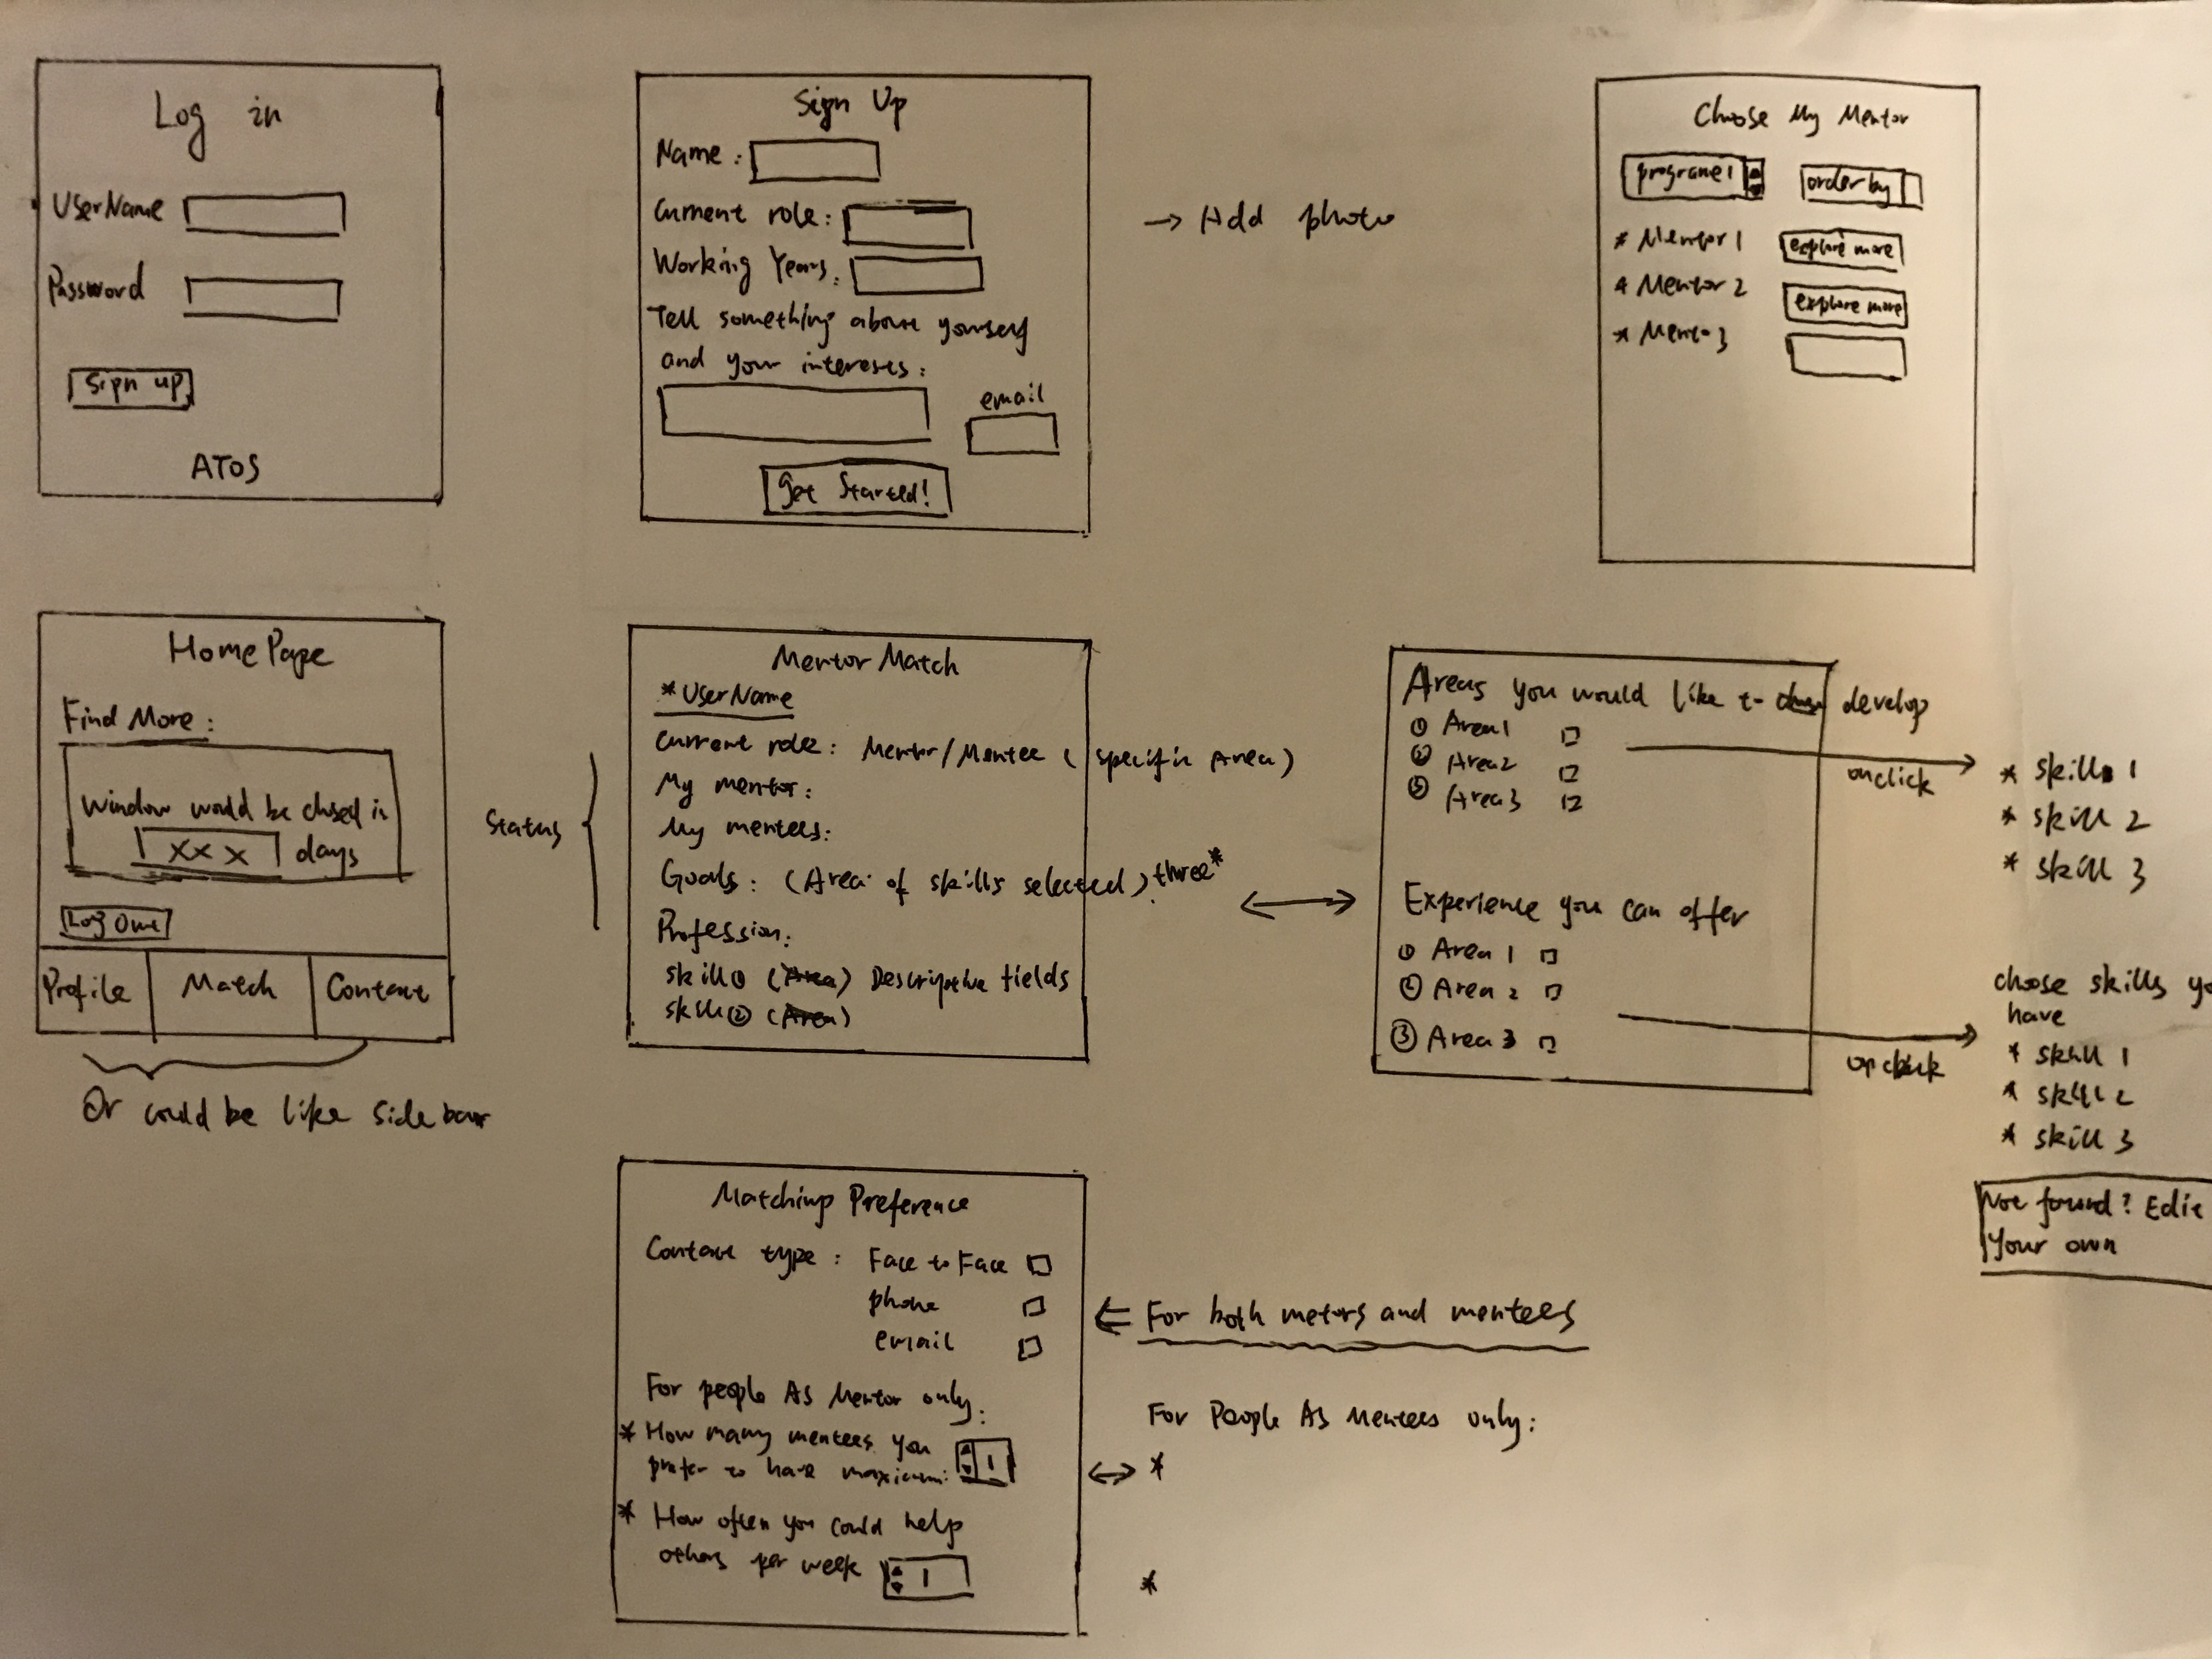 Log in
UserName
Password
Sign up
ATOS
Sign Up
Name :
Current role :
Working Years :
Tell something about yourself
and your interests :
email
Get Started!
→ Add photo
Choose My Mentor
programe 1
order by
* Mentor 1
explore more
* Mentor 2
explore more
* Mentor 3
HomePage
Find More :
Window would be closed in
XXX days
Log Out
Profile
Match
Contact
Or could be like sidebar
Status
Mentor Match
* UserName
Current role : Mentor/Mentee ( specific Area )
My mentor :
My mentees :
Goals : (Area of skills selected) three*
Profession :
skill① (Area) Descriptive fields
skill② (Area)
Areas you would like to develop
① Area1
② Area2
③ Area3
onclick
* skill 1
* skill 2
* skill 3
Experience you can offer
① Area 1
② Area 2
③ Area 3
onclick
choose skills yo
have
* skill 1
* skill 2
* skill 3
Not found? Edit
Your own
Matching Preference
Contact type : Face to Face
phone
email
← For both metors and mentees
For people As Mentor only :
* How many mentees you
prefer to have maxium :
1
* How often you could help
others per week
1
For People As Mentees only :
*
*